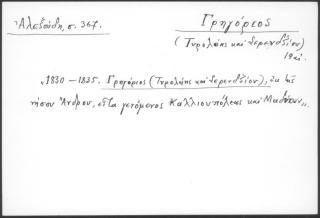 Ἀλεξούδη, σ. 367.
Γρηγόριος
(Τυρολόης καὶ Σερεντζίου)
19 αἰ.
«1830 – 1835. Γρηγόριος (Τυρολόης καὶ Σερεντζίου), ἐκ τῆς
νήσου Ἄνδρου, εἶτα γενόμενος Καλλιουπόλεως καὶ Μαδύτου».